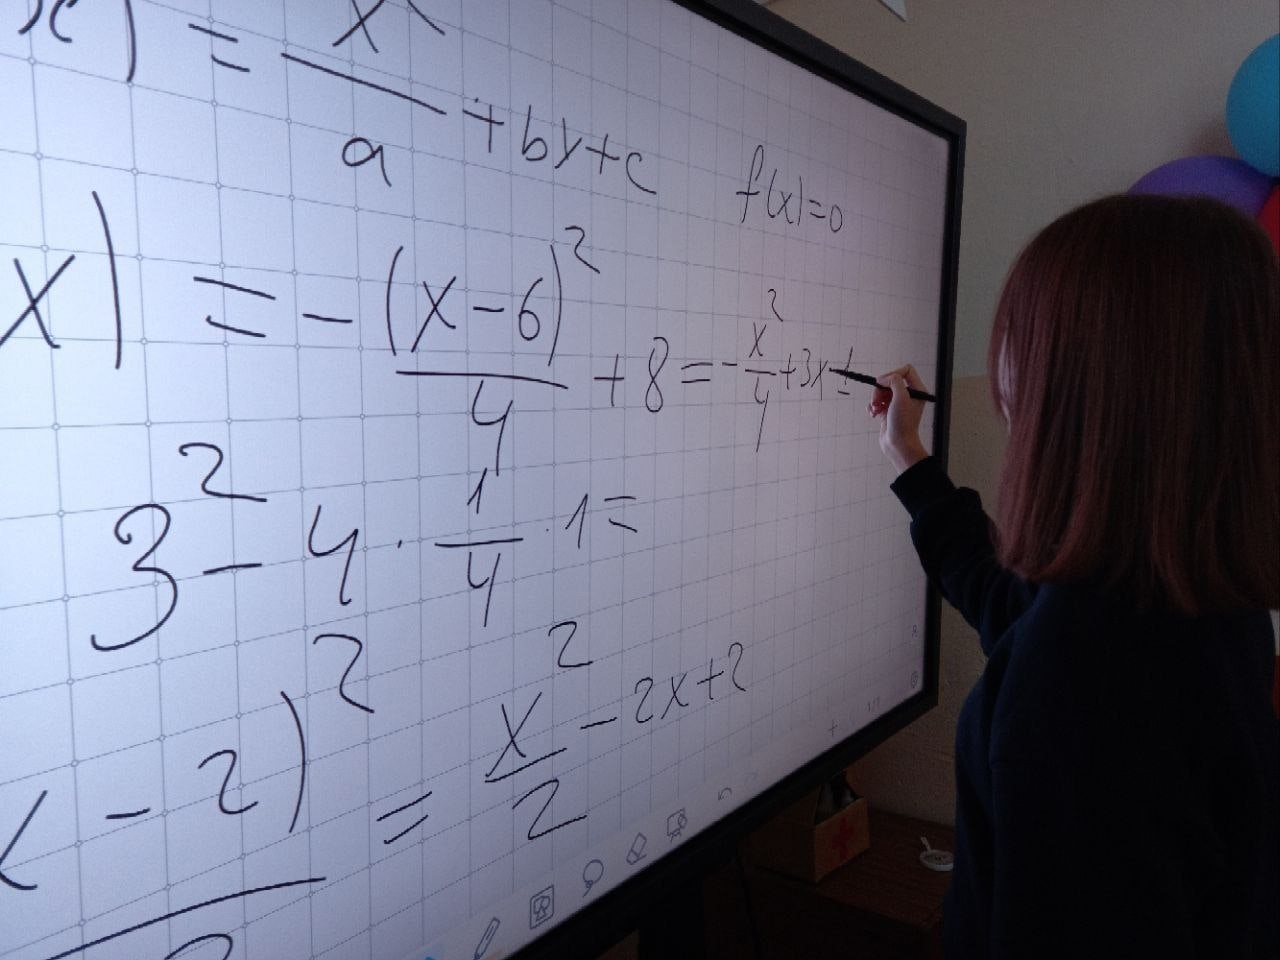 x) = x² / a + by + c
f(x)=0
x) = -(x-6)² / 4 + 8 = -x²/4 + 3x - 1
3² - 4 · 1/4 · 1 =
x - 2)² / 2 = x²/2 - 2x + 2